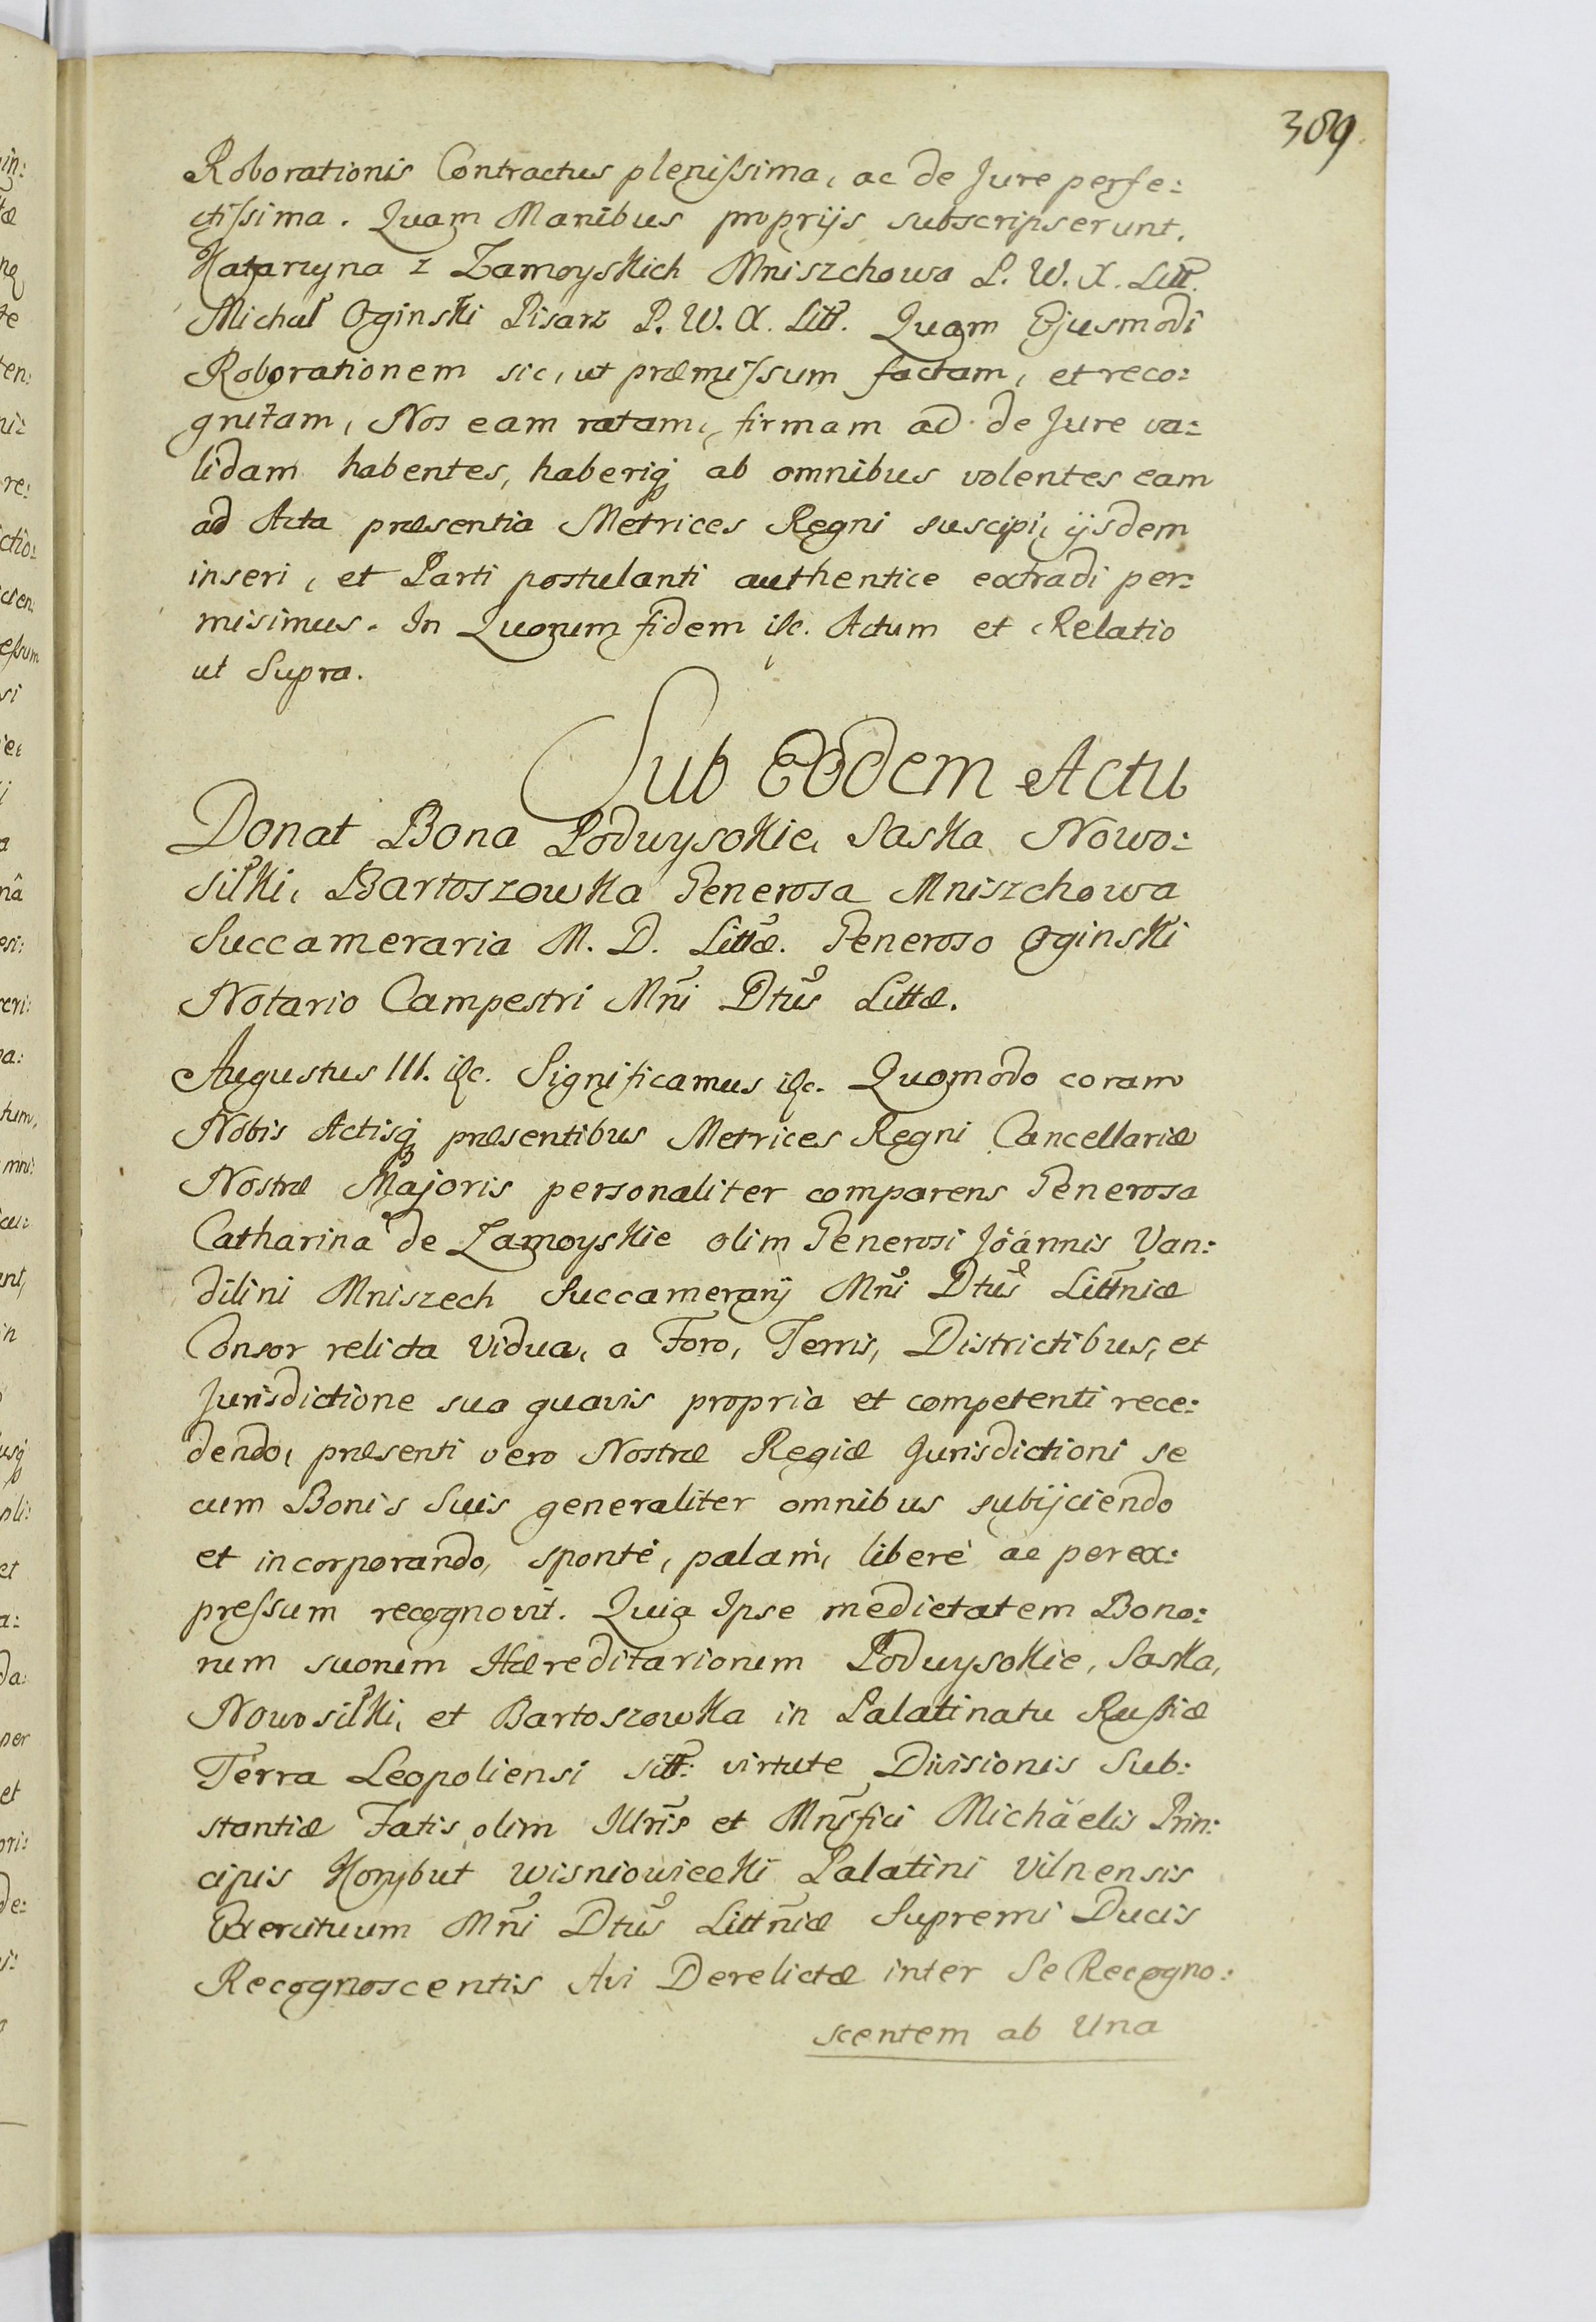 389.
Roborationis Contractus plenissima, ac de Jure perfe:
ctissima. Quam Manibus proprijs subscripserunt.
Katarzyna z Zamoyskich Mniszchowa P. W. X. Litt.
Michał Oginski Pisarz P. W. X. Litt. Quam Ejusmodi
Roborationem sic, ut præmissum factam, et reco:
gnitam, Nos eam ratam, firmam ac de Jure va:
lidam habentes, haberiq; ab omnibus volentes eam
ad Acta præsentia Metrices Regni suscipi, ijsdem
inseri, et Parti postulanti authentice extradi per:
misimus. In Quorum fidem &c. Actum et Relatio
ut Supra.
Sub Eodem Actu
Donat Bona Podwysokie, Saska, Nowo:
siłki, Bartoszowka Generosa Mniszchowa
Succameraria M. D. Littæ. Generoso Oginski
Notario Campestri Mni Dtus Littæ.
Augustus III. &c. Significamus &c. Quomodo coram
Nobis Actisq; præsentibus Metrices Regni Cancellariæ
Nostræ Majoris personaliter comparens Generosa
Catharina de Zamoyskie olim Generosi Joannis Van:
dilini Mniszech Succamerarij Mni Dtus Littniæ
Consor relicta Vidua, a Foro, Terris, Districtibus, et
Jurisdictione sua quavis propria et competenti rece:
dendo, præsenti vero Nostræ Regiæ Jurisdictioni se
cum Bonis Suis generaliter omnibus subijciendo
et incorporando, sponté, palam, liberé ac per ex:
pressum recognovit. Quia Ipse medietatem Bono:
rum suorum Hæreditariorum Podwysokie, Saska,
Nowosiłki, et Bartoszowka in Palatinatu Russiæ
Terra Leopoliensi sitt: virtute Divisionis Sub:
stantiæ Fatis olim Illris et Mnifici Michäelis Prin:
cipis Korybut Wisniowiecki Palatini Vilnensis
Exercituum Mni Dtus Littniæ Supremi Ducis
Recognoscentis Avi Derelictæ inter Se Recogno:
scentem ab Una